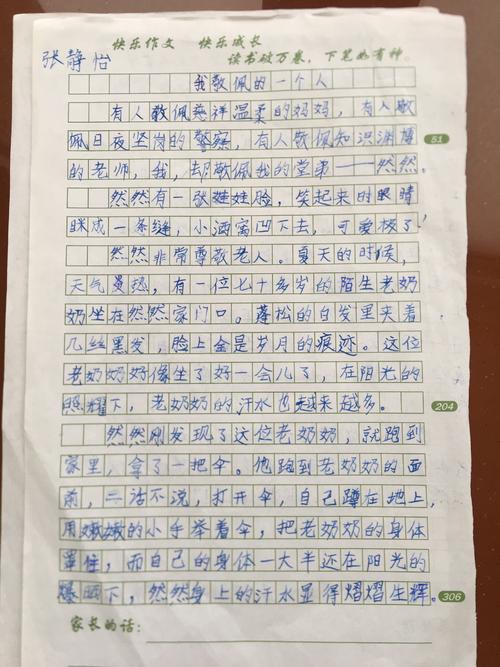 快乐作文 快乐成长
张静怡
读书破万卷，下笔如有神。
我敬佩的一个人
有人敬佩慈祥温柔的妈妈，有人敬
佩日夜坚岗的警察，有人敬佩知识渊博
51
的老师，我，却敬佩我的堂弟——然然。
然然有一张娃娃脸，笑起来时眼睛
眯成一条缝，小酒窝凹下去，可爱极了
然然非常尊敬老人。夏天的时候，
天气炎热，有一位七十多岁的陌生老奶
奶坐在然然家门口。蓬松的白发里夹着
几丝黑发，脸上全是岁月的痕迹。这位
老奶奶好像坐了好一会儿了，在阳光的
照耀下，老奶奶的汗水也越来越多。
204
然然刚发现了这位老奶奶，就跑到
家里，拿了一把伞。他跑到老奶奶的面
前，二话不说，打开伞，自己蹲在地上，
用嫩嫩的小手举着伞，把老奶奶的身体
罩住，而自己的身体一大半还在阳光的
爆晒下，然然身上的汗水显得熠熠生辉。
306
家长的话：